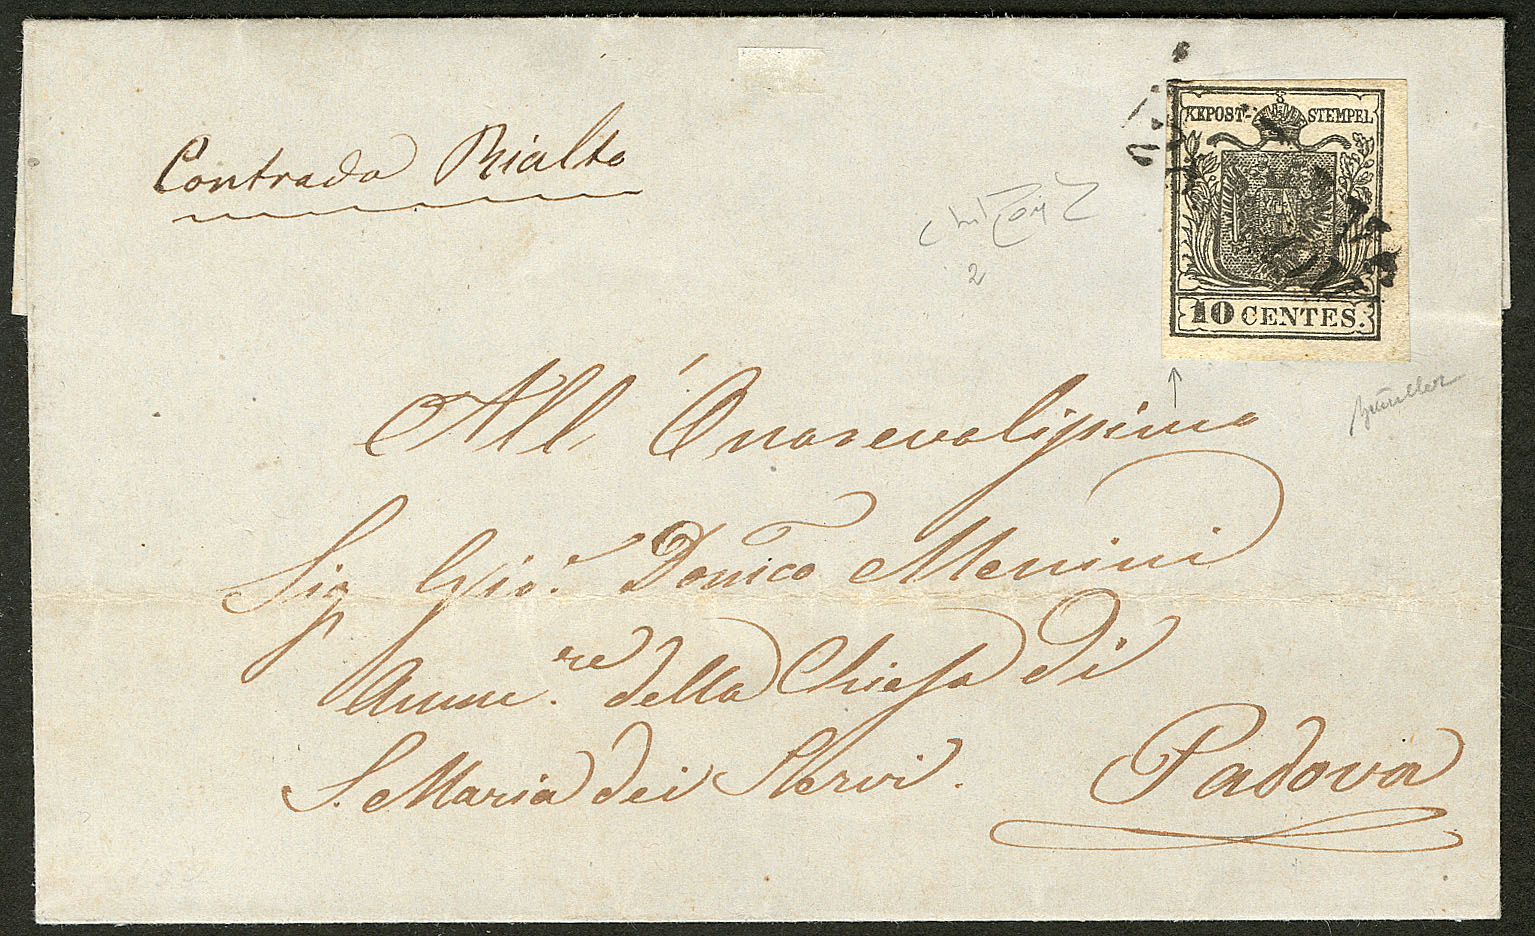 Contrada Rialto
KKPOST-STEMPEL
10 CENTES.
2
All' Onorevolissimo
Sig Gio. Domco Menini
Amm.re della Chiesa di
S. Maria dei Servi.
Padova